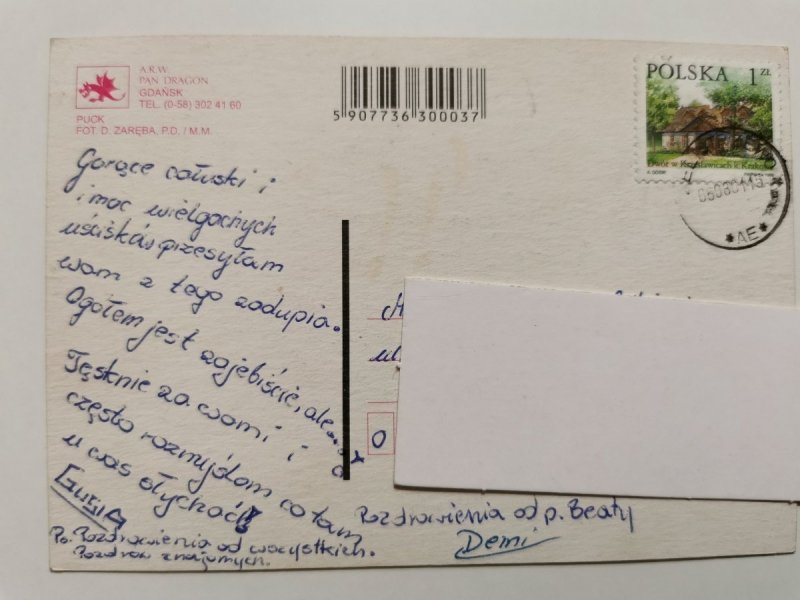 A.R.W.
PAN DRAGON
GDAŃSK
TEL. (0-58) 302 41 60
PUCK
FOT. D. ZARĘBA, P.D. / M.M.
5 907736 300037
POLSKA 1 ZŁ
Dwór w Krzesławicach k. Krakowa
AE
Gorące całuski i
i moc wielgaśnych
uścisków przesyłam
wam z tego zadupia.
Ogołem jest zajebiście, ale...
Tęsknie za wami i
często rozmyślam co tam
u was słychać!
ul
0
Pozdrowienia od p. Beaty
Demi
Ps. Pozdrowienia od wszystkich.
Pozdrów znajomych.